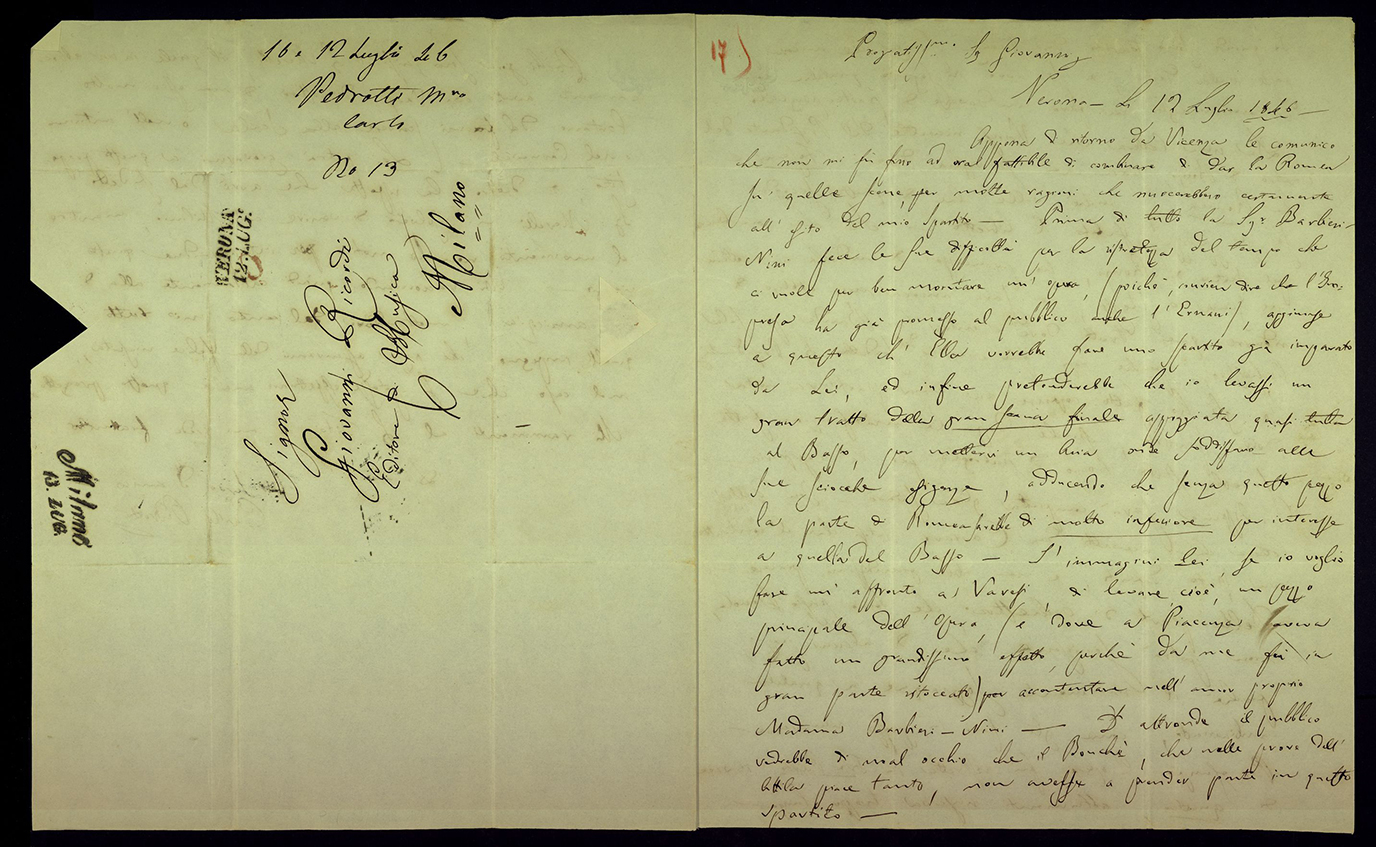 16 a 12 Luglio 46
Pedrotti Mro
Carlo
No 13
VERONA
12. LUG.
Signor
Giovanni Ricordi
Editore di Musica
Milano
Milano
13. LUG.
17)
Pregatissmo Sig Giovanni
Verona – Li 12 Luglio 1846 –
Appena di ritorno da Vicenza le comunico
che non mi fu fino ad ora fattibile di combinare di dar la Romea
su quelle scene, per molte ragioni che nuocerebbero certamente
all' esito del mio spartito — Prima di tutto la Sigra Barbieri-
Nini fece le sue difficoltà per la ristretezza del tempo che
ci vuole per ben montare un' opera, (poichè, convien dire che l'Im-
presa ha già promesso al pubblico anche l'Ernani), aggiunge
a questo ch' Ella vorrebbe fare uno spartito già imparato
da Lei, ed infine pretenderebbe che io levassi un
gran tratto della gran scena finale appoggiata quasi tutta
al Basso, per mettervi un Aria onde soddisfare alle
sue sciocche esigenze, adducendo che senza questo pezzo
la parte di Romea sarebbe di molto inferiore per interesse
a quella del Basso — S'immagini Lei, se io voglio
fare un' affronto a Varesi di levare cioè, un pezzo
principale dell' Opera, (e dove a Piacenza aveva
fatto un grandissimo effetto, perchè da me fu in
gran parte ritoccato) per accontentare nell' amor proprio
Madama Barbieri-Nini — D'altronde il pubblico
vedrebbe di mal occhio che il Bouchè, che nelle prove dell'
Attila piace tanto, non avesse a prender parte in questo
spartito —